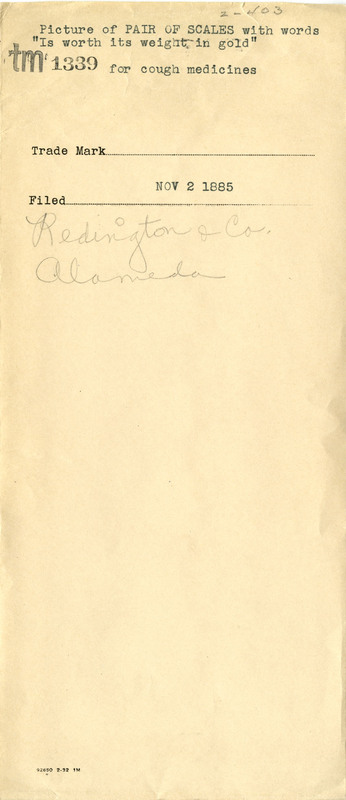 2-403
Picture of PAIR OF SCALES with words
"Is worth its weight in gold"
tm 1339 for cough medicines
Trade Mark
NOV 2 1885
Filed
Redington & Co.
Alameda
62650 2-32 1M